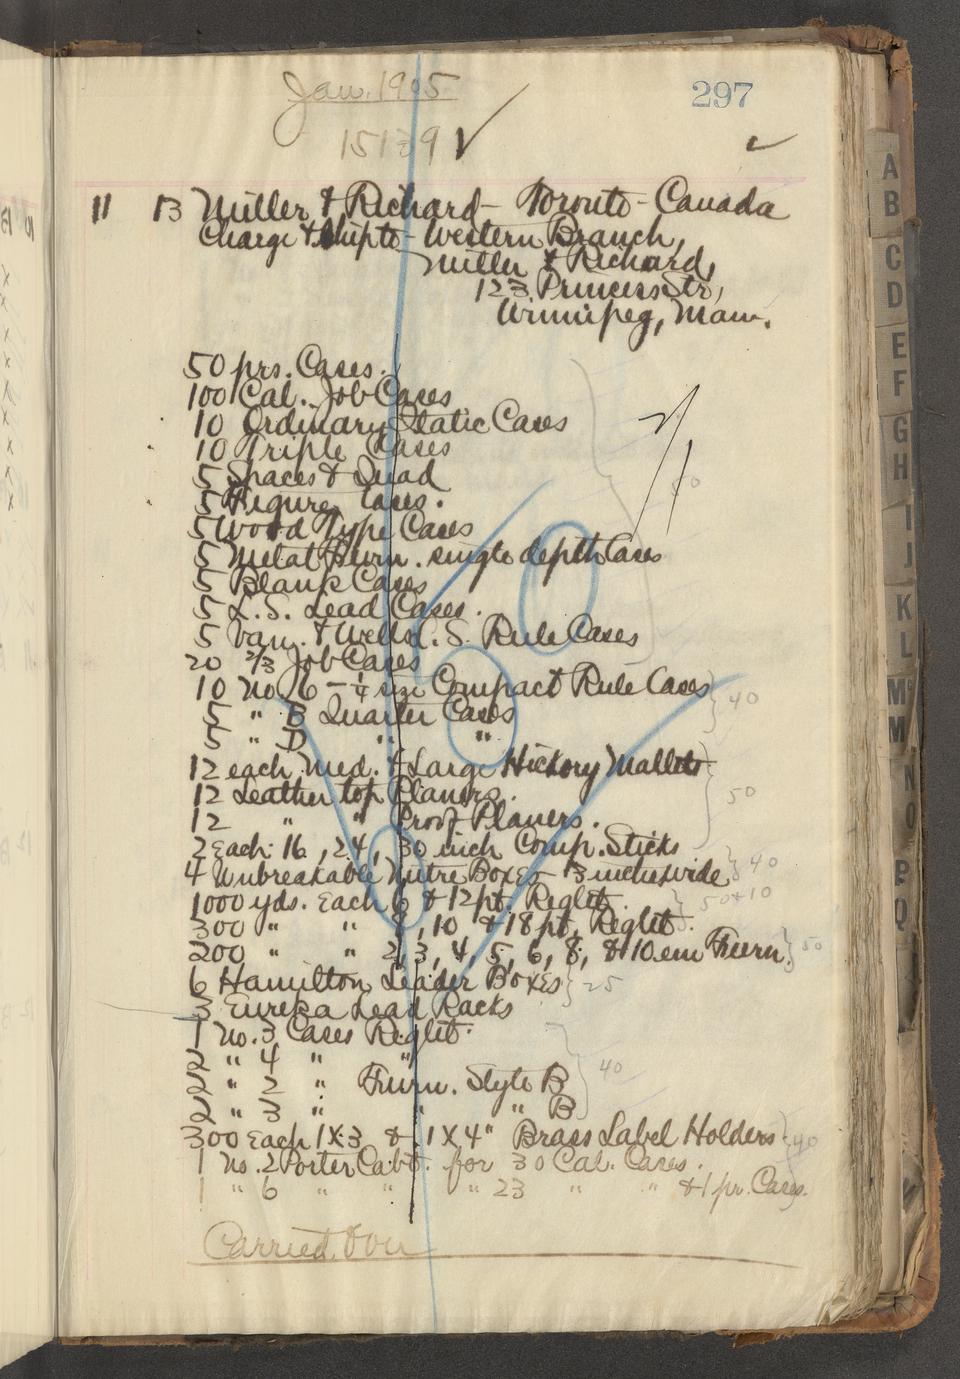 Jan. 1905
297
15139 ✓
11 13 Miller & Richard - Toronto - Canada
Charge & Ship to - Western Branch,
Miller & Richard,
123 Princess Str,
Winnipeg, Man.
50 prs. Cases.
100 Cal. Job Cases
10 Ordinary Italic Cases
10 Triple Cases
5 Spaces & Quad
5 Figures Cases.
5 Wood Type Cases
5 Metal Furn. single depth Cases
5 Blank Cases
5 L.S. Lead Cases.
5 Van. & Wells L.S. Rule Cases
20 2/3 Job Cases
50
10 No. 6 - 1/4 size Compact Rule Cases
5 " B Quarter Cases
5 " D " "
40
12 each Med. & Large Hickory Mallets
12 Leather top Planers.
12 " " Proof Planers.
50
2 Each 16, 24, 30 inch Comp. Sticks
4 Unbreakable Mitre Boxes 3 inches wide
40
1000 yds. Each 6 & 12 pt. Reglet
300 " " 8, 10 & 18 pt. Reglet
50+10
200 " " 2, 3, 4, 5, 6, 8, & 10 em Furn. 50
6 Hamilton Leader Boxes 25
3 Eureka Lead Racks
1 No. 3 Cases Reglet.
2 " 4 " "
2 " 2 " Furn. Style B
2 " 3 " " " B
40
300 Each 1X3 & 1X4" Brass Label Holders 40
1 No. 2 Porter Cabt. for 30 Cal. Cases.
1 " 6 " " " 23 " " & 1 pr. Cases.
Carried Over
A
B
C
D
E
F
G
H
I
J
K
L
M
M
N
O
P
Q